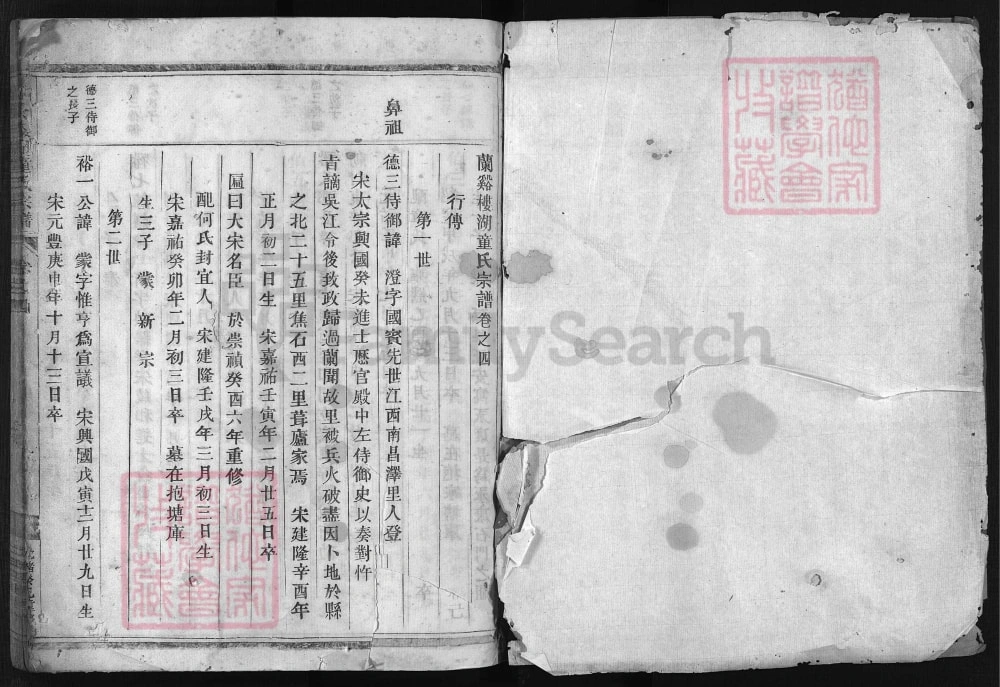 蘭谿樓湖童氏宗譜卷之四
行傳
第一世
鼻祖
德三侍御諱 澄字國賓先世江西南昌澤里人登
宋太宗興國癸未進士歷官殿中左侍御史以奏對忤
旨謫吳江令後致政歸過蘭聞故里被兵火破盡因卜地於縣
之北二十五里焦石西二里葺廬家焉 宋建隆辛酉年
正月初二日生 宋嘉祐壬寅年二月廿五日卒
匾曰大宋名臣 於崇禎癸酉六年重修
配何氏封宜人 宋建隆壬戌年三月初三日生
宋嘉祐癸卯年二月初三日卒 墓在抱塘庫
生三子 蒙 新 宗
第二世
德三侍御
之長子
裕一公諱 蒙字惟亨爲宣議 宋興國戊寅十二月廿九日生
宋元豐庚申年十月十三日卒
FamilySearch